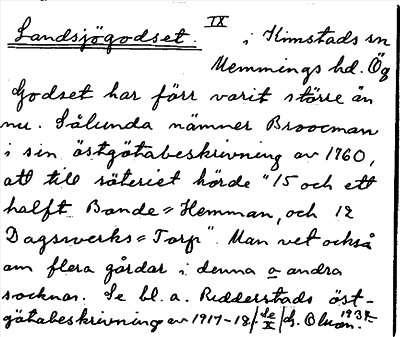 Landsjögodset. IX i Kimstads sn
Memmings hd. Ög
Godset har förr varit större än
nu. Sålunda nämner Broocman
i sin östgötabeskrivning av 1760,
att till säteriet hörde "15 och ett
halft Bonde=Hemman, och 12
Dagswerks=Torp". Man vet också
om flera gårdar i denna o andra
socknar. Se bl. a. Ridderstads öst-
götabeskrivning av 1917-18. /Se X/ G. Olsson. 1937.